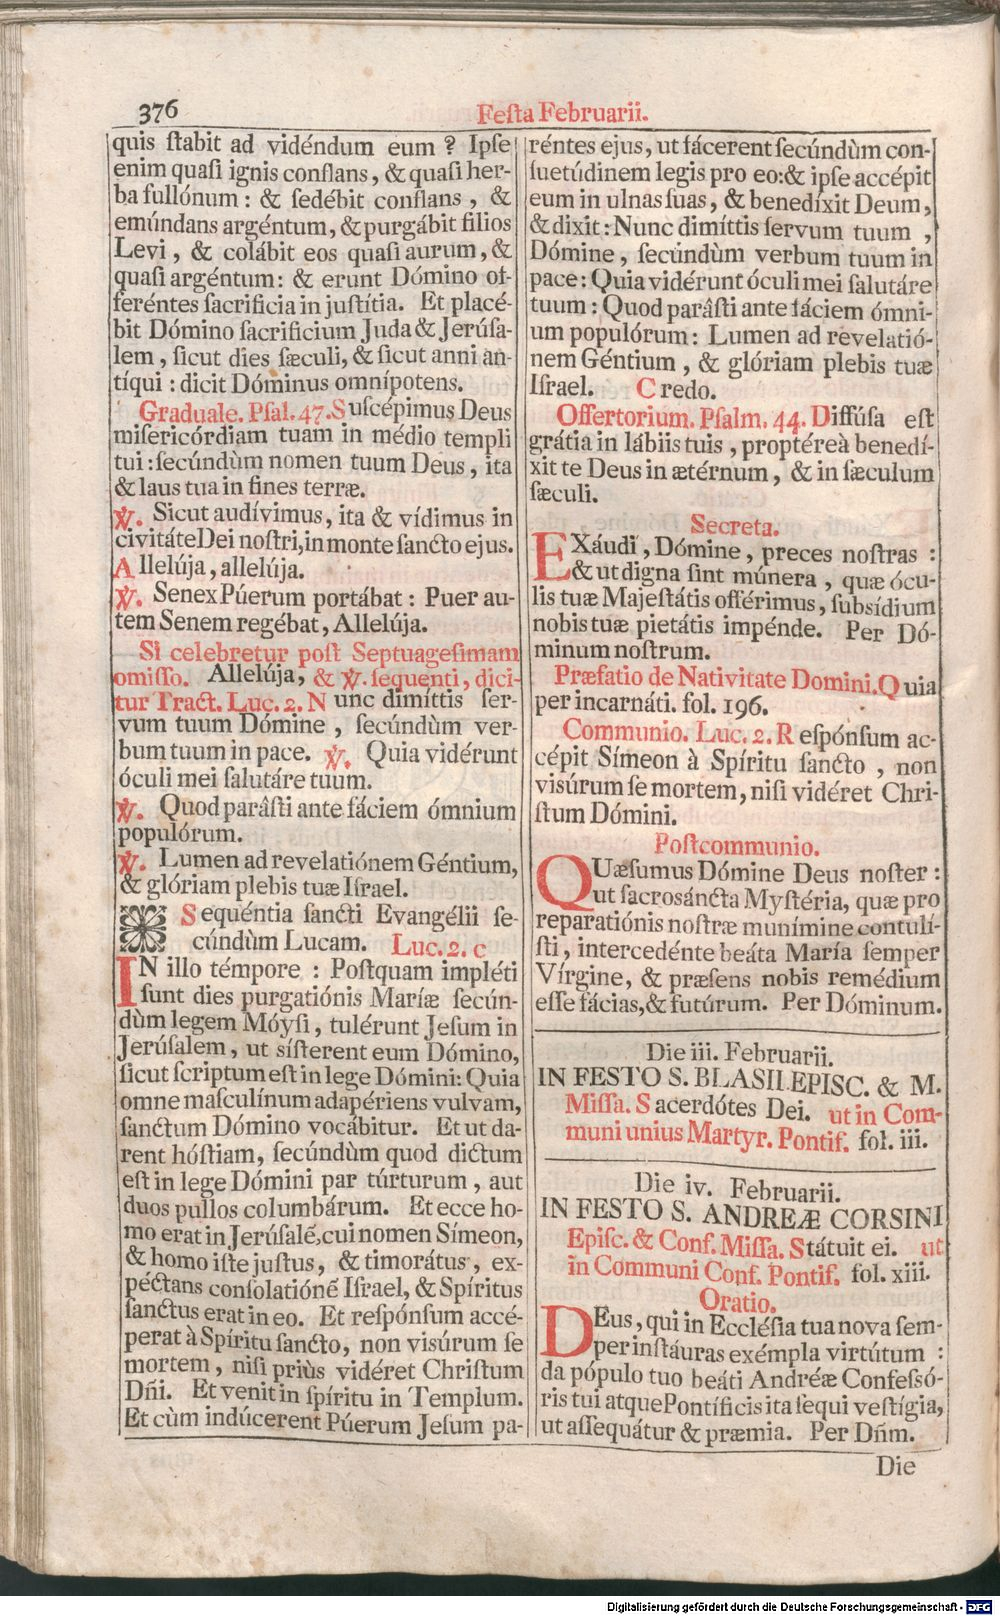 376
Feſta Februarii.
quis ſtabit ad vidéndum eum ? Ipſe
enim quaſi ignis conflans, & quaſi her-
ba fullónum : & ſedébit conflans , &
emúndans argéntum, & purgábit filios
Levi , & colábit eos quaſi aurum, &
quaſi argéntum: & erunt Dómino of-
feréntes ſacrificia in juſtítia. Et placé-
bit Dómino ſacrificium Juda & Jerúſa-
lem , ſicut dies ſæculi, & ſicut anni an-
tíqui : dicit Dóminus omnípotens.
Graduale. Pſal. 47. Suſcépimus Deus
miſericórdiam tuam in médio templi
tui : ſecúndùm nomen tuum Deus , ita
& laus tua in fines terræ.
℣. Sicut audívimus, ita & vídimus in
civitáte Dei noſtri, in monte ſancto ejus.
Allelúja, allelúja.
℣. Senex Púerum portábat : Puer au-
tem Senem regébat, Allelúja.
Si celebretur poſt Septuageſimam
omiſſo. Allelúja, & ℣. ſequenti, dici-
tur Tract. Luc. 2. Nunc dimíttis ſer-
vum tuum Dómine , ſecúndùm ver-
bum tuum in pace. ℣. Quia vidérunt
óculi mei ſalutáre tuum.
℣. Quod parâſti ante fáciem ómnium
populórum.
℣. Lumen ad revelatiónem Géntium,
& glóriam plebis tuæ Iſrael.
Sequéntia ſancti Evangélii ſe-
cúndùm Lucam. Luc. 2. c
IN illo témpore : Poſtquam impléti
ſunt dies purgatiónis Maríæ ſecún-
dùm legem Móyſi, tulérunt Jeſum in
Jerúſalem, ut síſterent eum Dómino,
ſicut ſcriptum eſt in lege Dómini: Quia
omne maſculínum adapériens vulvam,
ſanctum Dómino vocábitur. Et ut da-
rent hóſtiam, ſecúndùm quod dictum
eſt in lege Dómini par túrturum , aut
duos pullos columbárum. Et ecce ho-
mo erat in Jerúſalẽ, cui nomen Símeon,
& homo iſte juſtus, & timorátus, ex-
péctans conſolatiónẽ Iſrael, & Spíritus
ſanctus erat in eo. Et reſpónſum accé-
perat à Spíritu ſancto, non visúrum ſe
mortem , niſi priùs vidéret Chriſtum
Dñi. Et venit in ſpíritu in Templum.
Et cùm indúcerent Púerum Jeſum pa-
réntes ejus, ut fácerent ſecúndùm con-
ſuetúdinem legis pro eo: & ipſe accépit
eum in ulnas ſuas, & benedíxit Deum,
& dixit : Nunc dimíttis ſervum tuum ,
Dómine , ſecúndùm verbum tuum in
pace : Quia vidérunt óculi mei ſalutáre
tuum : Quod parâſti ante fáciem ómni-
um populórum : Lumen ad revelatió-
nem Géntium , & glóriam plebis tuæ
Iſrael. Credo.
Offertorium. Pſalm. 44. Diffúſa eſt
grátia in lábiis tuis , proptéreà benedí-
xit te Deus in ætérnum, & in ſæculum
ſæculi.
Secreta.
EXáudi , Dómine , preces noſtras :
& ut digna ſint múnera , quæ ócu-
lis tuæ Majeſtátis offérimus, ſubſídium
nobis tuæ pietátis impénde. Per Dó-
minum noſtrum.
Præfatio de Nativitate Domini. Quia
per incarnáti. fol. 196.
Communio. Luc. 2. Reſpónſum ac-
cépit Símeon à Spíritu ſancto , non
visúrum ſe mortem, niſi vidéret Chri-
ſtum Dómini.
Poſtcommunio.
QUæſumus Dómine Deus noſter :
ut ſacrosáncta Myſtéria, quæ pro
reparatiónis noſtræ munímine contulí-
ſti, intercedénte beáta María ſemper
Vírgine, & præſens nobis remédium
eſſe fácias, & futúrum. Per Dóminum.
Die iii. Februarii.
IN FESTO S. BLASII EPISC. & M.
Miſſa. Sacerdótes Dei. ut in Com-
muni unius Martyr. Pontif. fol. iii.
Die iv. Februarii.
IN FESTO S. ANDREÆ CORSINI
Epiſc. & Conf. Miſſa. Státuit ei. ut
in Communi Conf. Pontif. fol. xiii.
Oratio.
DEus, qui in Eccléſia tua nova ſem-
per inſtáuras exémpla virtútum :
da pópulo tuo beáti Andréæ Confeſsó-
ris tui atque Pontíficis ita ſequi veſtígia,
ut aſſequátur & præmia. Per Dñm.
Die
Digitalisierung gefördert durch die Deutsche Forschungsgemeinschaft - DFG